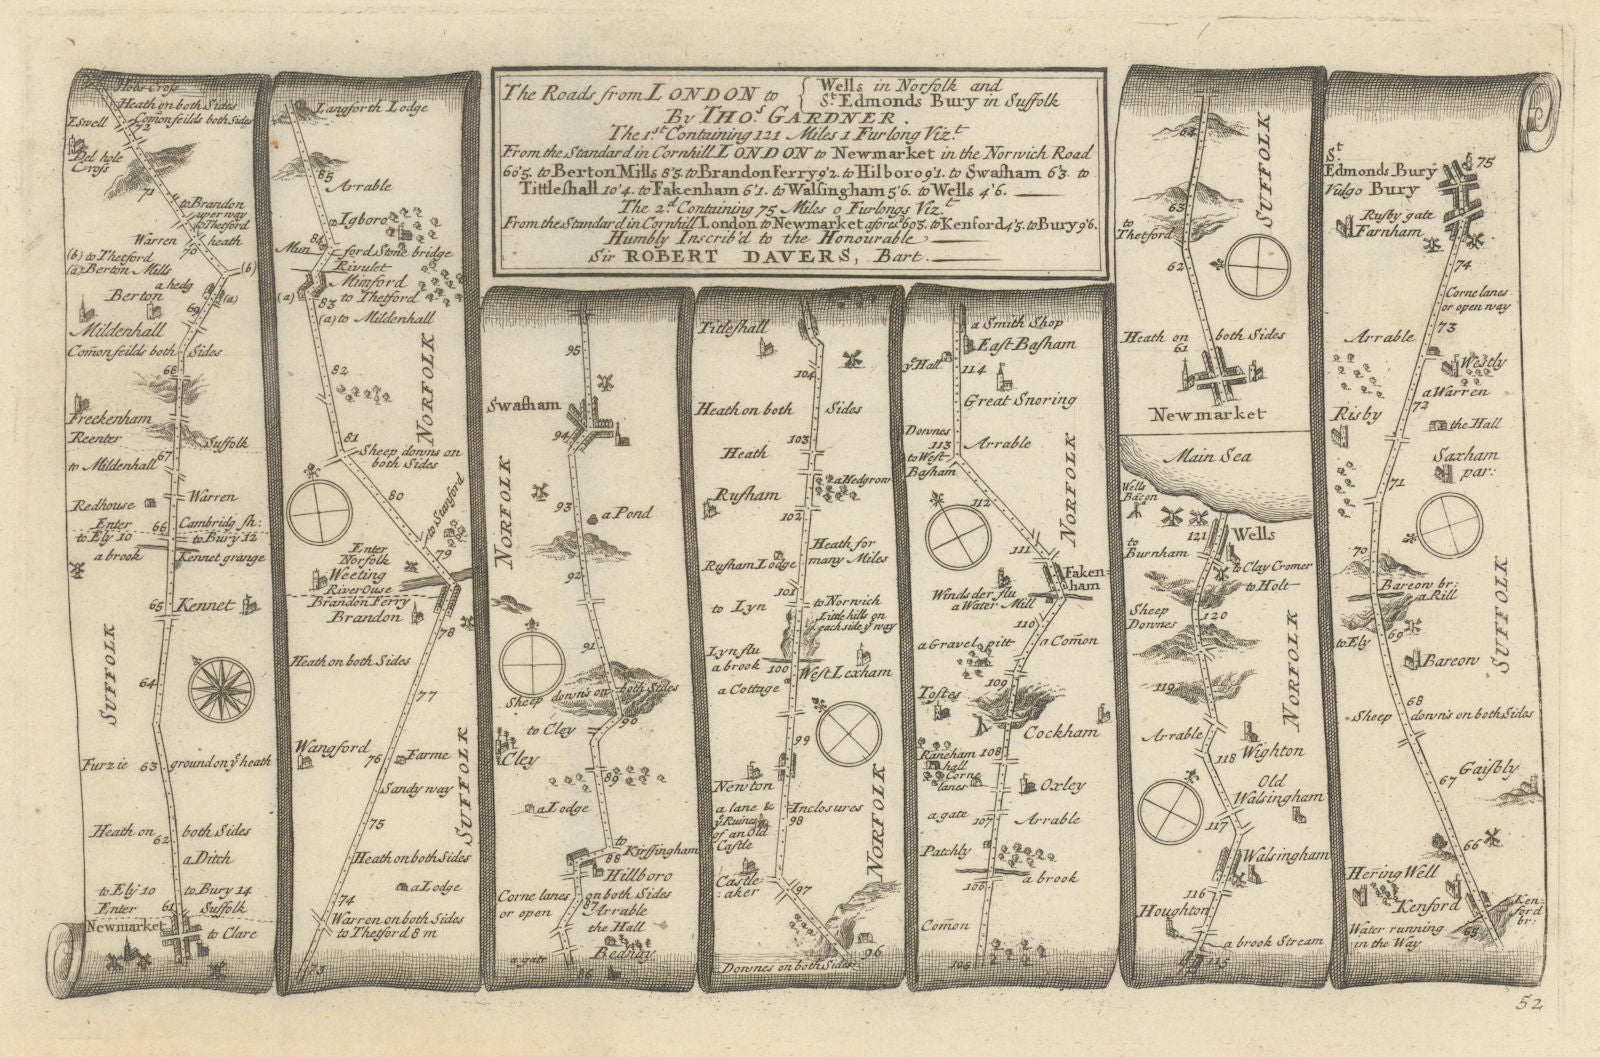 The Roads from LONDON to { Wells in Norfolk and
St Edmonds Bury in Suffolk
By THOs. GARDNER.
The 1st Containing 121 Miles 1 Furlong Vizt.
From the Standard in Cornhill LONDON to Newmarket in the Norwich Road
60'5. to Berton Mills 8'3. to Brandon Ferry 9'2. to Hilboro 9'1. to Swafham 6'3. to
Tittleshall 10'4. to Fakenham 6'1. to Walsingham 5'6. to Wells 4'6.
The 2d. Containing 75 Miles 0 Furlongs Vizt.
From the Standard in Cornhill London to Newmarket aforesd 60'5. to Kenford 4'5. to Bury 9'6.
Humbly Inscrib'd to the Honourable
Sir ROBERT DAVERS, Bart.
Hobs Cross
Heath on both Sides
Com̃on feilds both Sides
Iswell
72
Del hole
Cross
71
to Brandon
uper way
to Thetford
Warren
heath
70
(b) to Thetford
(b)
(a) Berton Mills
a hedg
(a)
Berton
69
Mildenhall
Comon feilds both Sides
68
Freckenham
Reenter
Suffolk
67
to Mildenhall
Warren
Redhouse
Enter
66
Cambridg sh:
to Ely 10
to Bury 12
a brook
Kennet grange
65
Kennet
SUFFOLK
64
Furzie
63
ground on ye heath
Heath on
62
both Sides
a Ditch
to Ely 10
to Bury 14
Enter
61
Suffolk
Newmarket
to Clare
Langforth Lodge
85
Arrable
Igboro
84
Mun
ford Stone bridge
Rivulet
Mimford
(a)
83
to Thetford
(a) to Mildenhall
NORFOLK
82
81
Sheep downs on
both Sides
80
to Stanford
79
Enter
Norfolk
Weeting
River Ouse
Brandon Ferry
Brandon
78
Heath on both Sides
77
SUFFOLK
Wangford
76
Farme
Sandy way
75
Heath on both Sides
a Lodge
74
Warren on both Sides
to Thetford 8 m
73
95
Swafham
94
NORFOLK
93
a Pond
92
91
Sheep down's on both Sides
90
to Cley
Cley
89
a Lodge
to
Kirssingham
88
Hillboro
Corne lanes
on both Sides
or open
87
Arrable
the Hall
Bednay
a gate
86
Titleshall
104
Heath on both
Sides
103
Heath
a Hedgrow
Rusham
102
Heath for
many Miles
Rusham Lodge
101
to Lyn
to Norwich
Little hills on
each side ye way
Lyn flu
a brook
100
West Lexham
a Cottage
99
NORFOLK
Newton
a lane &
Inclosures
ye Ruines
98
of an Old
Castle
Castle-
aker
97
96
Downes on both Sides
a Smith Shop
East Basham
ye Hall
114
Great Snoring
Downes
113
Arrable
to West-
Basham
NORFOLK
112
111
Faken-
ham
Winds der flu
a Water Mill
110
a Com̃on
a Gravel pitt
109
Tostes
Cockham
Raneham
hall
108
Corne
lanes
Oxley
a gate
107
Arrable
Patchly
106
a brook
Com̃on
105
64
SUFFOLK
63
to
Thetford
62
Heath on
61
both Sides
Newmarket
Main Sea
Wells
Bacon
121
Wells
to
Burnham
to Clay Cromer
to Holt
Sheep
Downes
120
NORFOLK
119
Arrable
Wighton
118
Old
Walsingham
117
Walsingham
116
Houghton
a brook Stream
115
St
Edmonds Bury
Vulgo Bury
75
Rusby gate
Farnham
74
Corne lanes
or open way
73
Arrable
Westly
a Warren
72
Risby
the Hall
Saxham
par:
71
70
Bareow br:
a Rill
SUFFOLK
69
to Ely
Bareow
68
Sheep
down's on both Sides
Gaisbly
67
66
Hering Well
Kenford
Ken-
ford
br:
65
Water running
in the Way
52